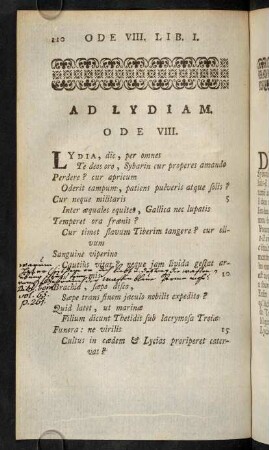 210 ODE VIII. LIB. I.
AD LYDIAM.
ODE VIII.
LYDIA, dic, per omnes
Te deos oro, Sybarin cur properes amando
Perdere? cur apricum
Oderit campum, patiens pulveris atque solis?
Cur neque militaris 5
Inter æquales equitet, Gallica nec lupatis
Temperet ora frænis?
Cur timet flavum Tiberim tangere? cur oli-
vum
Sanguine viperino
Cautius vitat? neque jam livida gestat ar-
10
Brachia, sæpe disco,
Sæpe trans finem jaculo nobilis expedito?
Quid latet, ut marinæ
Filium dicunt Thetidis sub lacrymosa Trojæ
Funera: ne virilis 15
Cultus in cædem & Lycias proriperet cater-
vas?